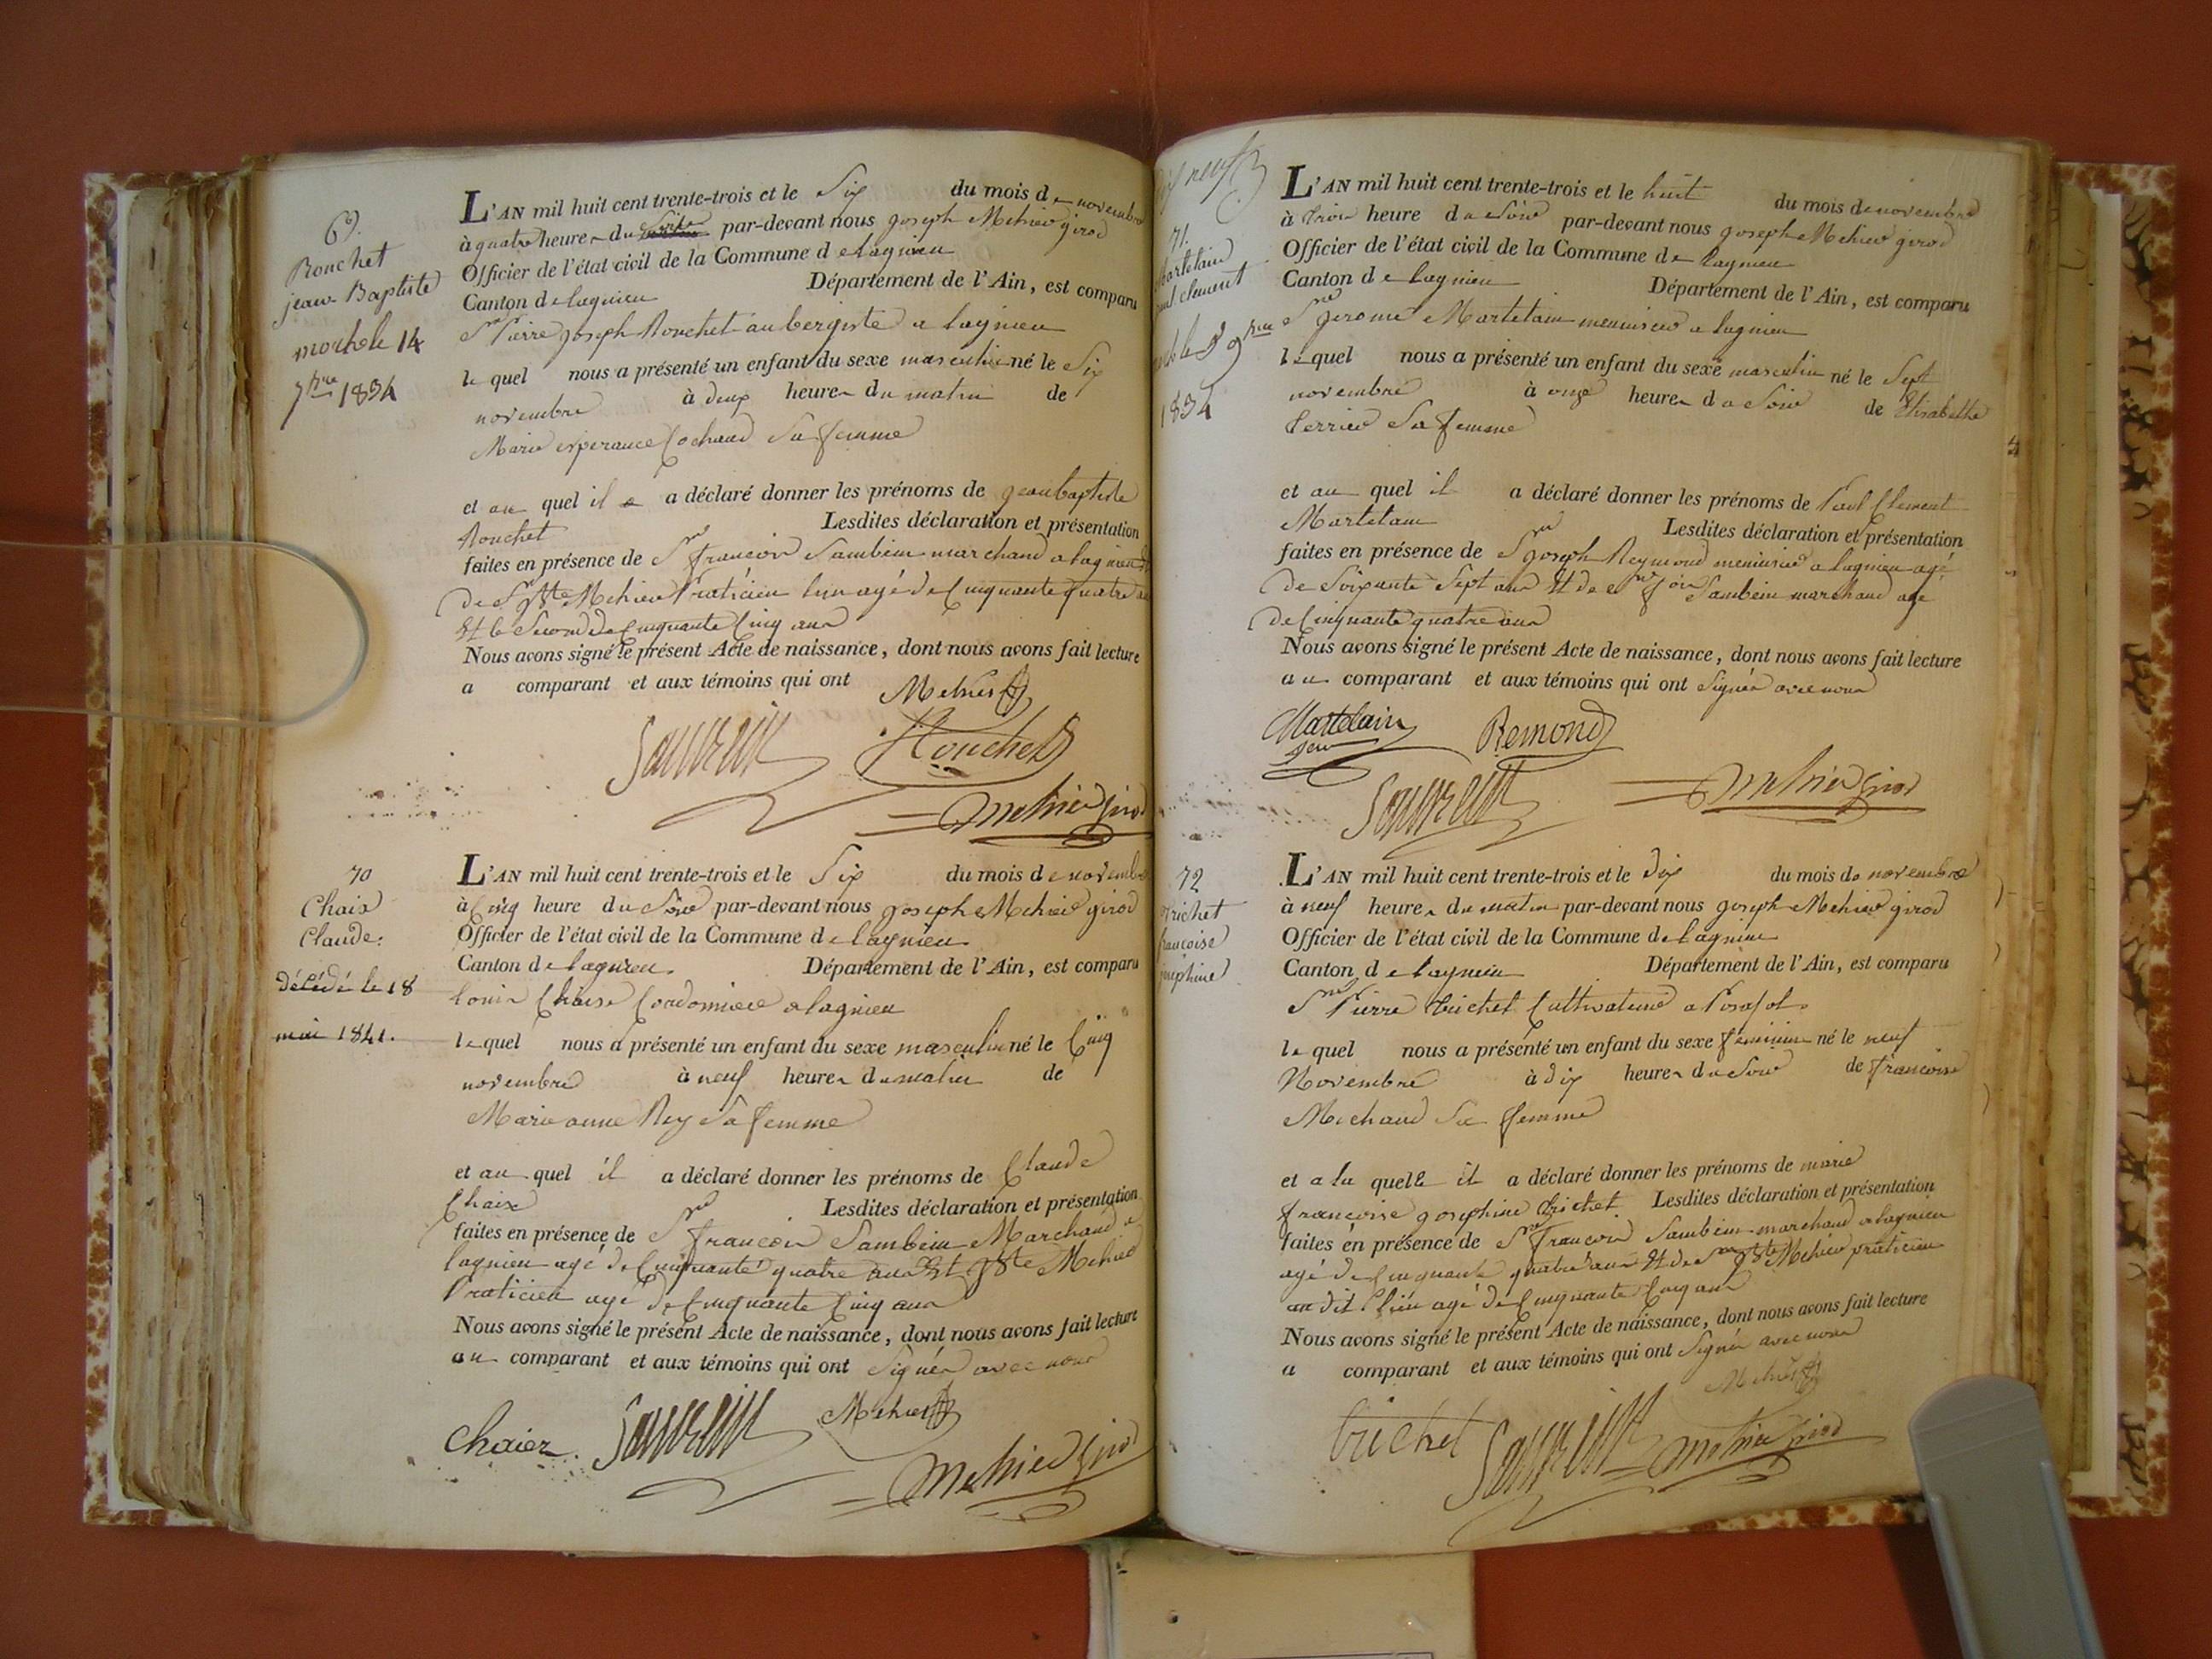 69.
Rouchet
jean Baptiste
mort le 14
7bre 1834
L'AN mil huit cent trente-trois et le Six du mois de novembre
à quatre heures du par-devant nous joseph Mehier girod
Officier de l'état civil de la Commune de lagnieu
Canton de lagnieu Département de l'Ain, est comparu
Sr Pierre joseph Rouchet aubergiste a lagnieu
le quel nous a présenté un enfant du sexe masculin né le Six
novembre à deux heures du matin de
Marie esperance Cochaud Sa femme
et au quel il a a déclaré donner les prénoms de jean baptiste
Rouchet Lesdites déclaration et présentation
faites en présence de Sr francois Sambein marchand a lagnieu et
de Sr jBte Mehier Praticien lun agé de Cinquante quatre ans
Et le Second de Cinquante Cinq ans
Nous avons signé le présent Acte de naissance, dont nous avons fait lecture
a comparant et aux témoins qui ont Mehier
Rouchet
Mehier girod
70
Chaix
Claude.
décédé le 18
mai 1841.
L'AN mil huit cent trente-trois et le Six du mois de novembre
à Cinq heure du Soir par-devant nous joseph Mehier girod
Officier de l'état civil de la Commune de lagnieu
Canton de lagnieu. Département de l'Ain, est comparu
louis Chaise Cordonnier a lagnieu
le quel nous a présenté un enfant du sexe masculin né le Cinq
novembre à neuf heures du matin de
Marie anne Rey Sa femme
et au quel il a déclaré donner les prénoms de Claude
Chaise Lesdites déclaration et présentation
faites en présence de Sr francois Sambein Marchand a
lagnieu agé de Cinquante quatre ans Et jBte Mehier
Praticien agé de Cinquante Cinq ans
Nous avons signé le présent Acte de naissance, dont nous avons fait lecture
au comparant et aux témoins qui ont Signés avec nous
Chaiez Mehier
Mehier girod
71.
Martelain
paul clement
le 9 9bre
1834
L'AN mil huit cent trente-trois et le huit du mois de novembre
à trois heure du Soir par-devant nous joseph Mehier girod
Officier de l'état civil de la Commune de lagnieu
Canton de lagnieu Département de l'Ain, est comparu
Sr jerome Martelain menuisier a lagnieu
le quel nous a présenté un enfant du sexe masculin né le Sept
novembre à onze heures du Soir de Elisabethe
Perrier Sa femme
et au quel il a déclaré donner les prénoms de Paul Clement
Martelain Lesdites déclaration et présentation
faites en présence de Sr joseph Reymond menuisier a lagnieu agé
de Soixante Sept ans Et de Sr fois Sambein marchand age
de Cinquante quatre ans
Nous avons signé le présent Acte de naissance, dont nous avons fait lecture
au comparant et aux témoins qui ont Signés avec nous
Martelain Remond
Mehier girod
72
trichet
françoise
josephine
L'AN mil huit cent trente-trois et le dix du mois de novembre
à neuf heures du matin par-devant nous joseph Mehier girod
Officier de l'état civil de la Commune de lagnieu
Canton de lagnieu Département de l'Ain, est comparu
Sr Pierre trichet Cultivateur a Posafol
le quel nous a présenté un enfant du sexe féminin né le neuf
Novembre à dix heures du Soir de françoise
Michaud Sa femme
et a la quelle il a déclaré donner les prénoms de marie
francoise josephine trichet Lesdites déclaration et présentation
faites en présence de Sr françois Sambein marchand a lagnieu
agé de Cinquante quatre ans Et de Sr jBte Mehier praticien
au dit lieu agé de Cinquante Cinq ans
Nous avons signé le présent Acte de naissance, dont nous avons fait lecture
a comparant et aux témoins qui ont Signés avec nous
Mehier
trichet Mehier girod